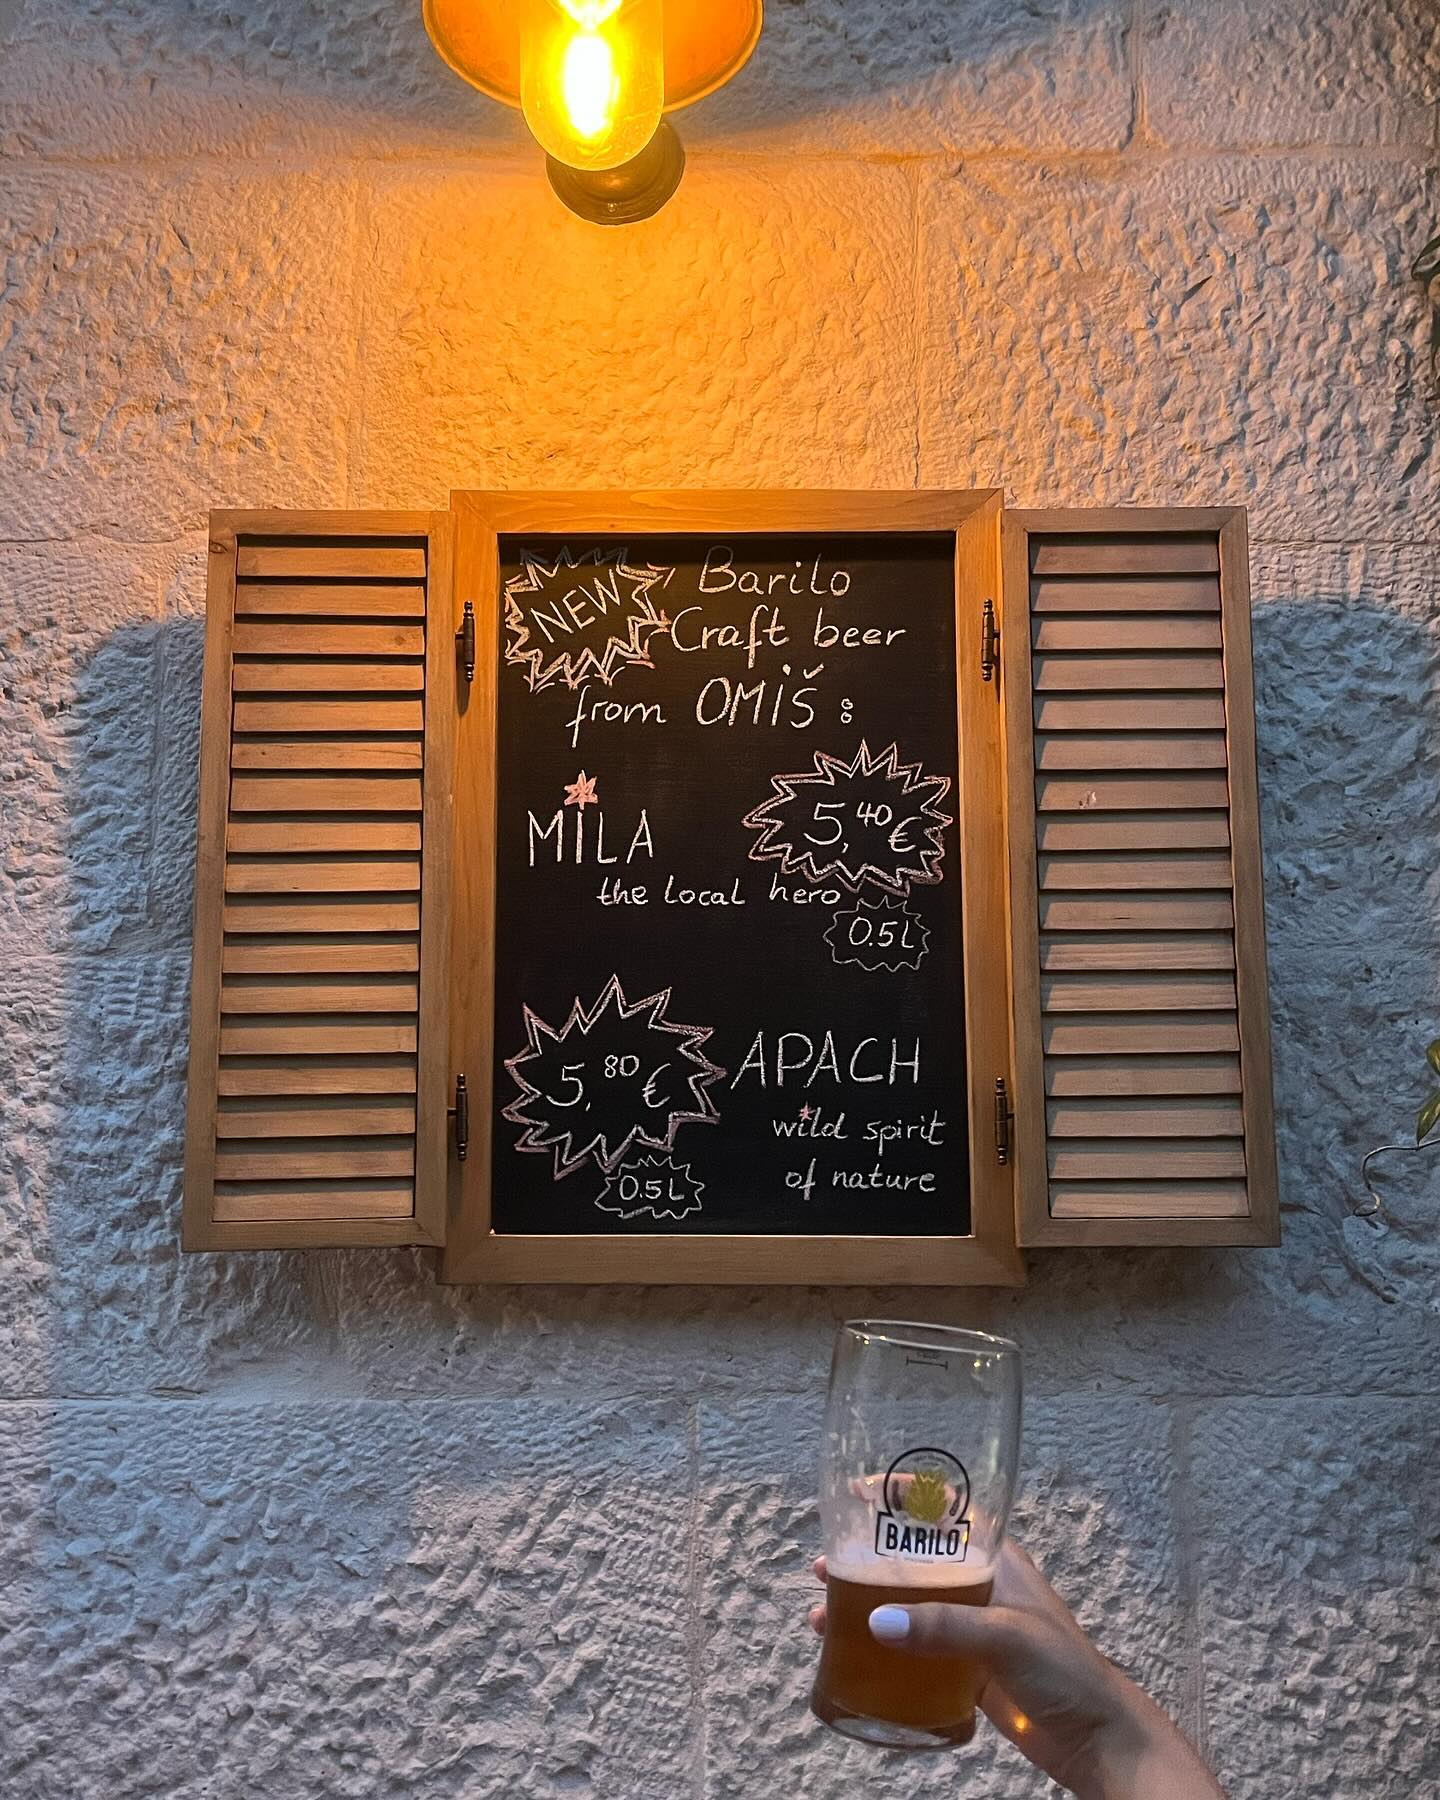 NEW
Barilo
Craft beer
from OMIŠ:
MILA
5,40 €
the local hero
0.5L
5,80 €
APACH
wild spirit
of nature
0.5L
BARILO